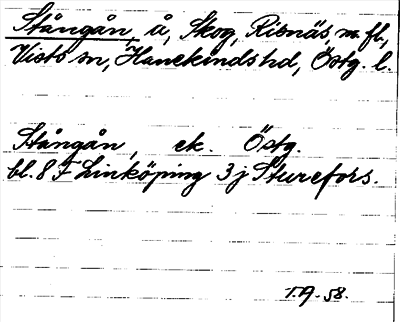 Stångån, å, Skog, Risnäs m. fl.,
Vists sn, Hanekinds hd, Östg. l.
Stångån, ek. Östg.
bl. 8 F Linköping 3 j Sturefors.
T.19-58.